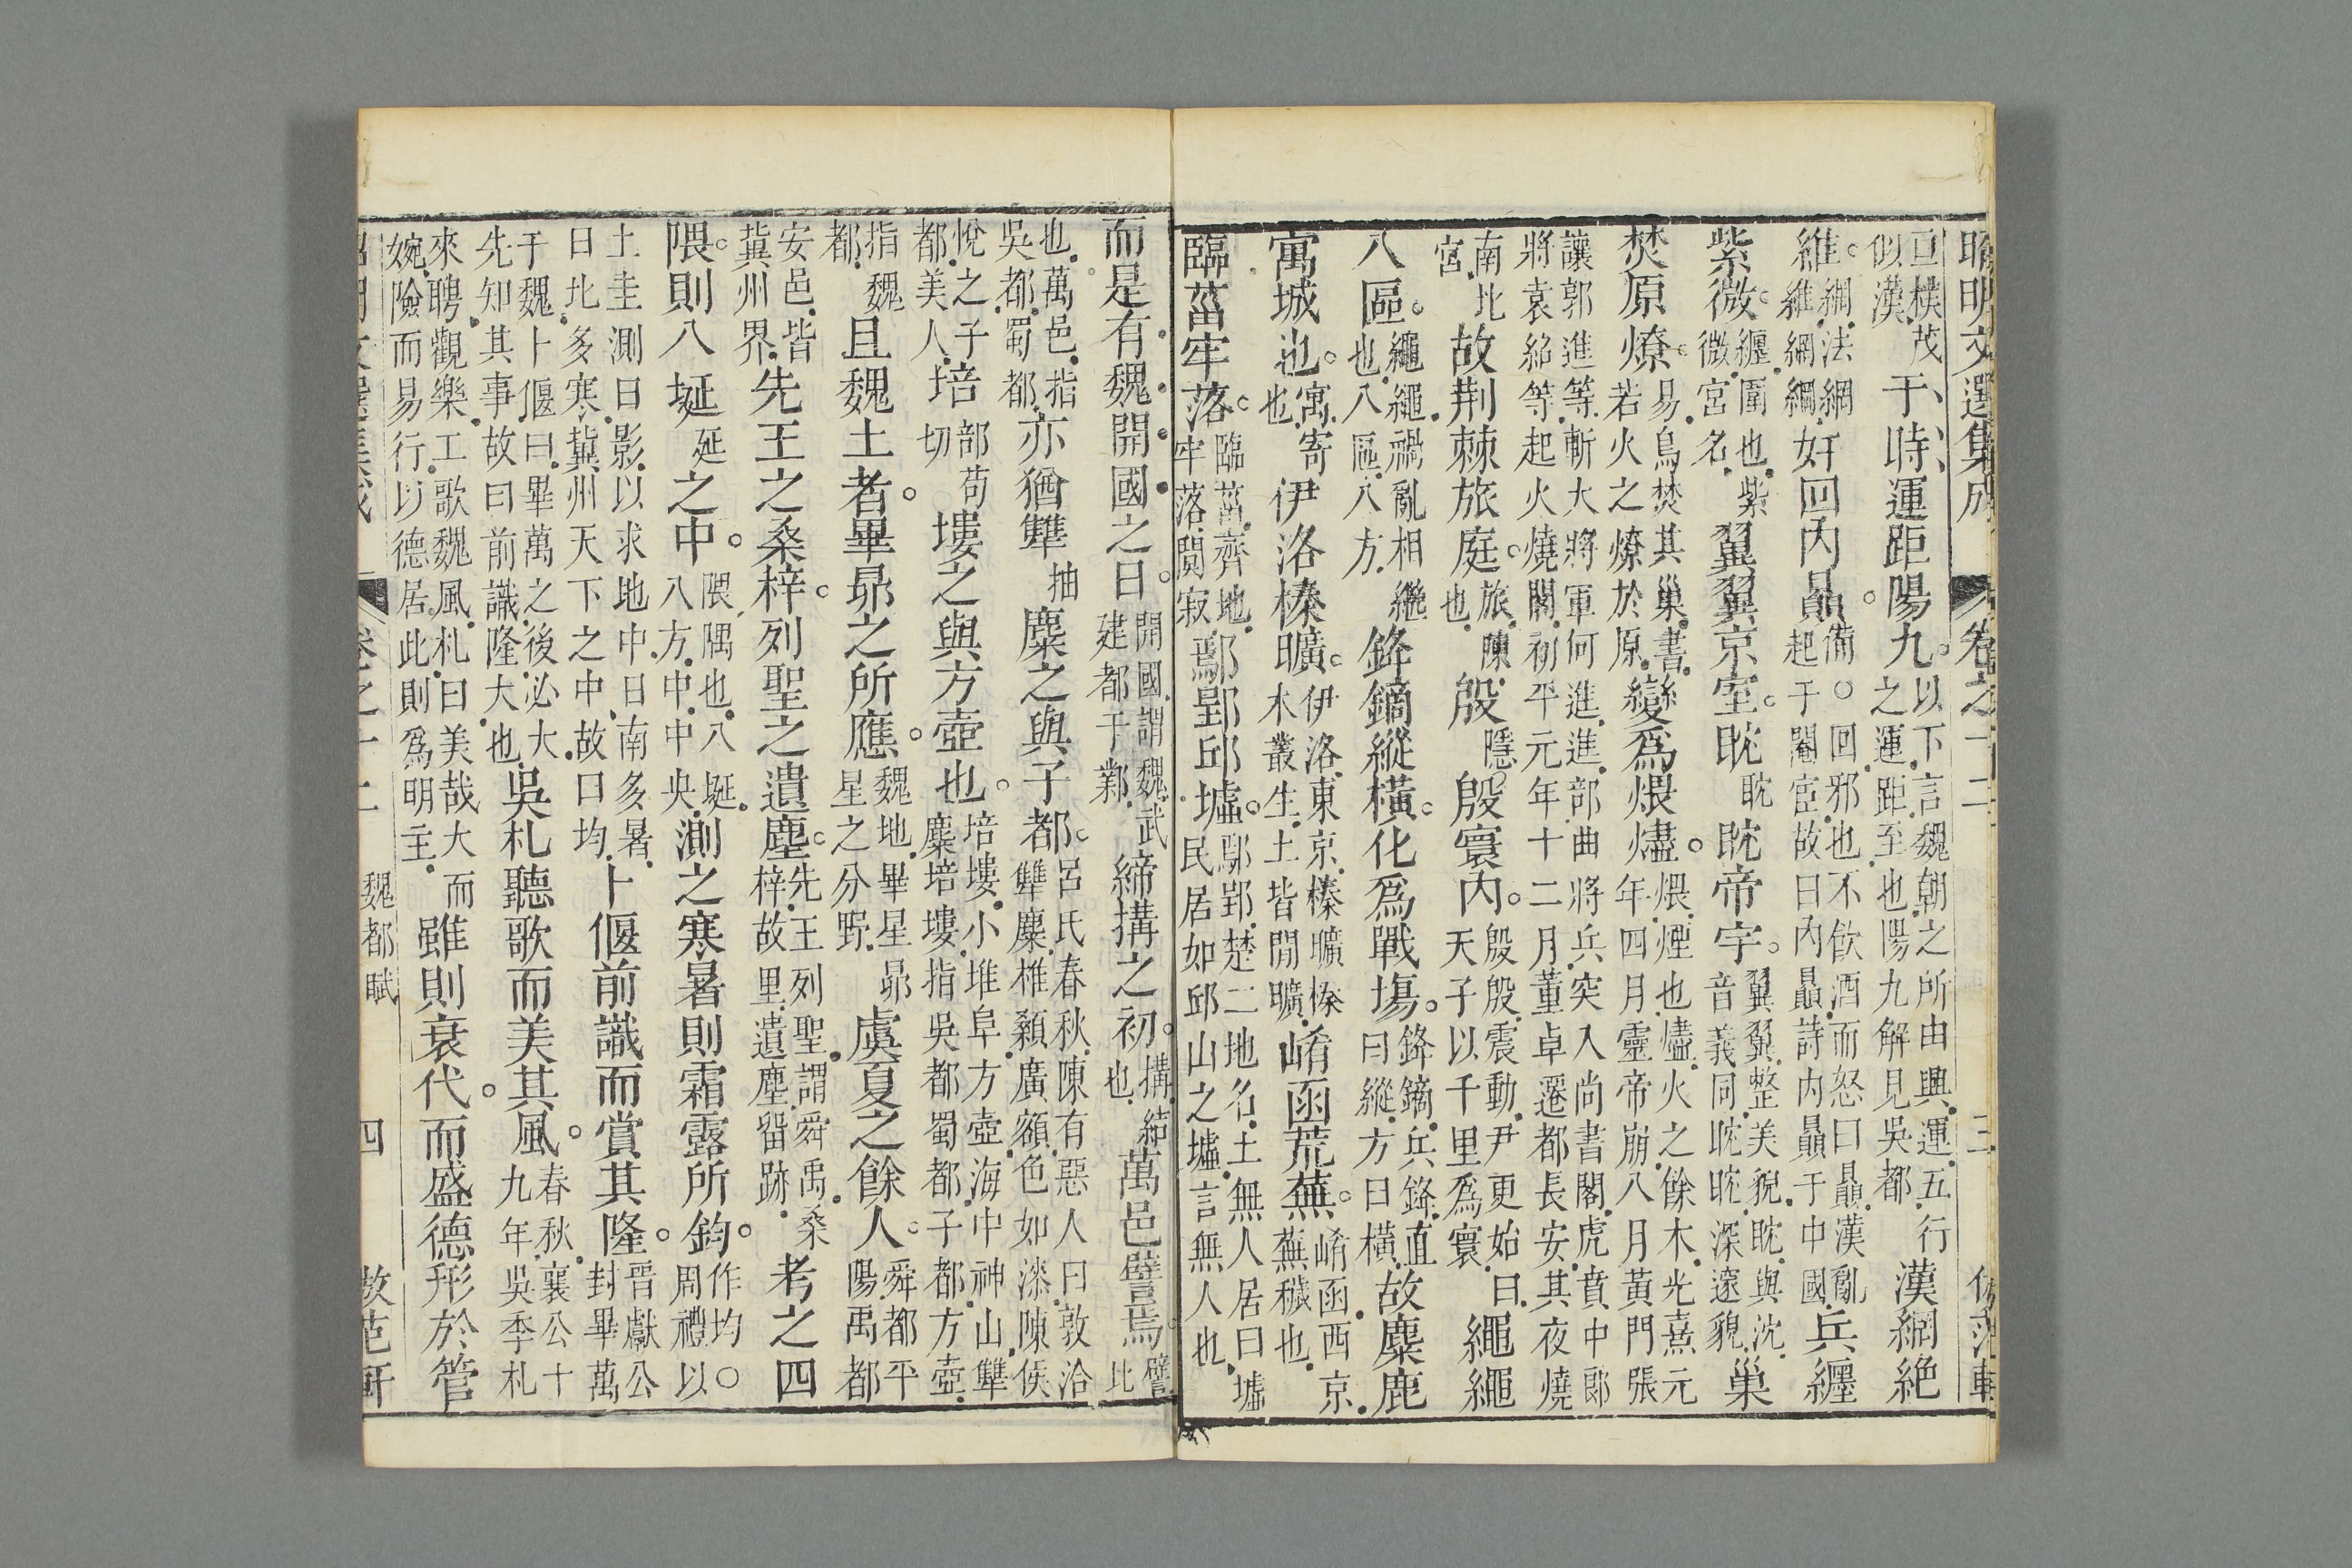 昭明文選集成　卷之十二　三　倣范軒
亘樸茂似漢于時運距陽九。以下言魏朝之所由興運五行之運距至也陽九解見吳都漢網絕
維。網法網維網綱奸回內贔。備○回邪也不飲酒而怒曰贔漢亂起于閹宦故曰內贔詩内贔于中國兵纏
紫微。纏圍也紫微宮名翼翼京室。眈耽眈帝宇。翼翼整美貌眈與沈音義同眈眈深邃貌巢
焚原燎。易鳥焚其巢書若火之燎於原變爲煨燼。煨煙也燼火之餘木光熹元年四月靈帝崩八月黃門張
讓郭進等斬大將軍何進進部曲將兵突入尚書閣虎賁中郎將袁紹等起火燒閣初平元年十二月董卓遷都長安其夜燒
南北宮故荆棘旅庭。旅陳也殷隱殷寰內。殷殷震動尹更始曰天子以千里爲寰繩繩
八區。繩繩禍亂相繼也八區八方鋒鏑縱橫。化爲戰塲。鋒鏑兵鋒直曰縱方曰橫故麋鹿
寓城也。寓寄也伊洛榛曠。伊洛東京榛曠榛木叢生土皆閒曠崤函荒蕪。崤函西京蕪穢也
臨菑牢落。臨菑齊地牢落闃寂鄢郢丘墟。鄢郢楚二地名土無人居曰墟民居如邱山之墟言無人也
而是有魏開國之日。開國謂魏武建都于鄴締搆之初。搆結也萬邑譬焉。譬比
也萬邑指吳都蜀都亦猶犨抽麋之與子都。呂氏春秋陳有惡人曰敦洽犨麋椎顙廣額色如漆陳侯
悅之子都美人培部苟切塿之與方壺也。培塿小堆阜方壺海中神山犨麋培塿指吳都蜀都子都方壺
指魏都且魏土者。畢昴之所應。魏地畢星昴星之分野虞夏之餘人。舜都平陽禹都
安邑皆冀州界先王之桑梓。列聖之遺塵。先王列聖謂舜禹桑梓故里遺塵留跡考之四
隈。則八埏延之中。隈隅也八埏八方中中央測之寒暑則霜露所鈞。作均○周禮以
土圭測日影以求地中日南多暑日北多寒冀州天下之中故曰均卜偃前識而賞其隆。晉獻公封畢萬
于魏卜偃曰畢萬之後必大先知其事故曰前識隆大也吳札聽歌而美其風。春秋襄公十九年吳季札
來聘觀樂工歌魏風札曰美哉大而婉險而易行以德居此則爲明主雖則衰代。而盛德形於管
昭明文選集成　卷之十二　魏都賦　四　倣范軒